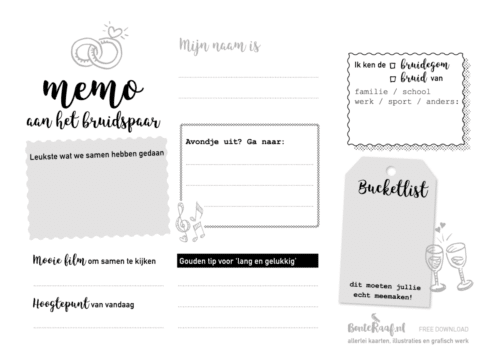 memo
aan het bruidspaar
Leukste wat we samen hebben gedaan
Mooie film om samen te kijken
Hoogtepunt van vandaag
Mijn naam is
Avondje uit? Ga naar:
Gouden tip voor 'lang en gelukkig'
Ik ken de bruidegom
bruid van
familie / school
werk / sport / anders:
Bucketlist
dit moeten jullie
echt meemaken!
BonteRaaf.nl FREE DOWNLOAD
allerlei kaarten, illustraties en grafisch werk